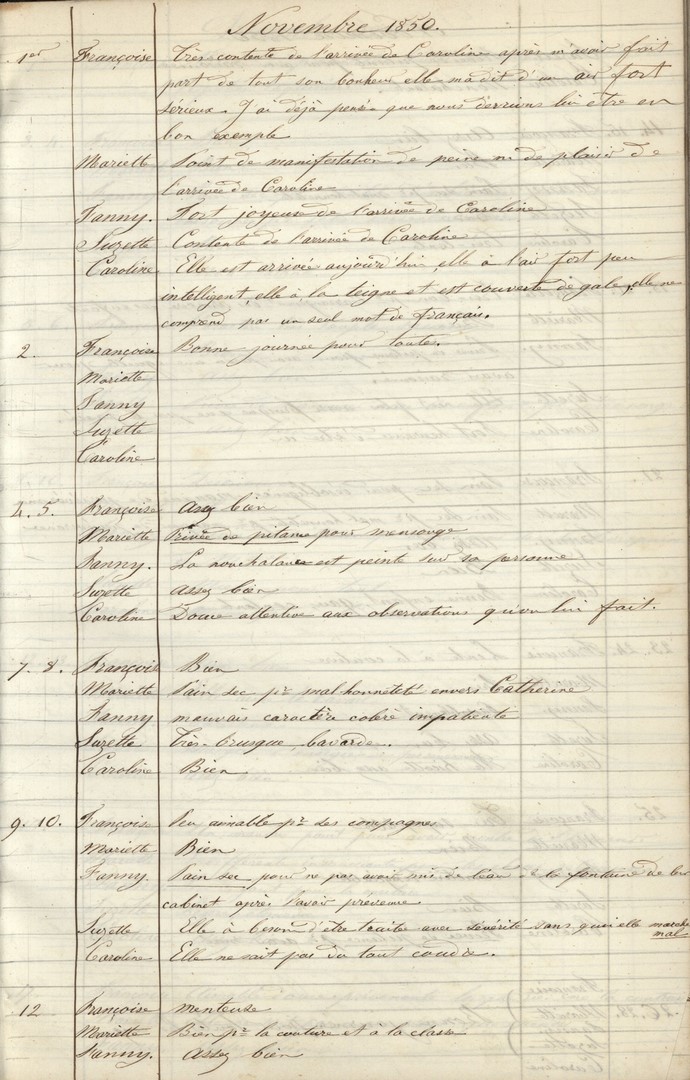 Novembre 1850.
1er Françoise Très contente de l'arrivée de Caroline après m'avoir fait
part de tout son bonheur elle m'a dit d'un air fort
sérieux. J'ai déjà pensé que nous devrions lui être en
bon exemple
Mariette Point de manifestation de peine ni de plaisir de
l'arrivée de Caroline
Fanny. Fort joyeuse de l'arrivée de Caroline
Suzette Contente de l'arrivée de Caroline
Caroline Elle est arrivée aujourd'hui, elle à l'air fort peu
intelligent, elle à la teigne et est couverte de gale, elle ne
comprend pas un seul mot de français.
2. Françoise Bonne journée pour toutes.
Mariette
Fanny
Suzette
Caroline
4. 5. Françoise Assez bien
Mariette Privée de pitance pour mensonge
Fanny. La nonchalance est peinte sur sa personne
Suzette Assez bien
Caroline Douce attentive aux observations qu'on lui fait.
7. 8. Françoise Bien
Mariette Pain sec pr malhonnêteté envers Catherine
Fanny mauvais caractère colère impatiente
Suzette Très-brusque, bavarde.
Caroline Bien
9. 10. Françoise Peu aimable pr ses compagnes
Mariette Bien
Fanny. Pain sec pour ne pas avoir mis de l'eau à la fontaine de leur
cabinet après l'avoir prévenue.
Suzette Elle à besoin d'être traitée avec sévérité sans quoi elle marche
mal
Caroline Elle ne sait pas du tout coudre.
12 Françoise menteuse
Mariette Bien pr la couture et à la classe
Fanny. Assez bien